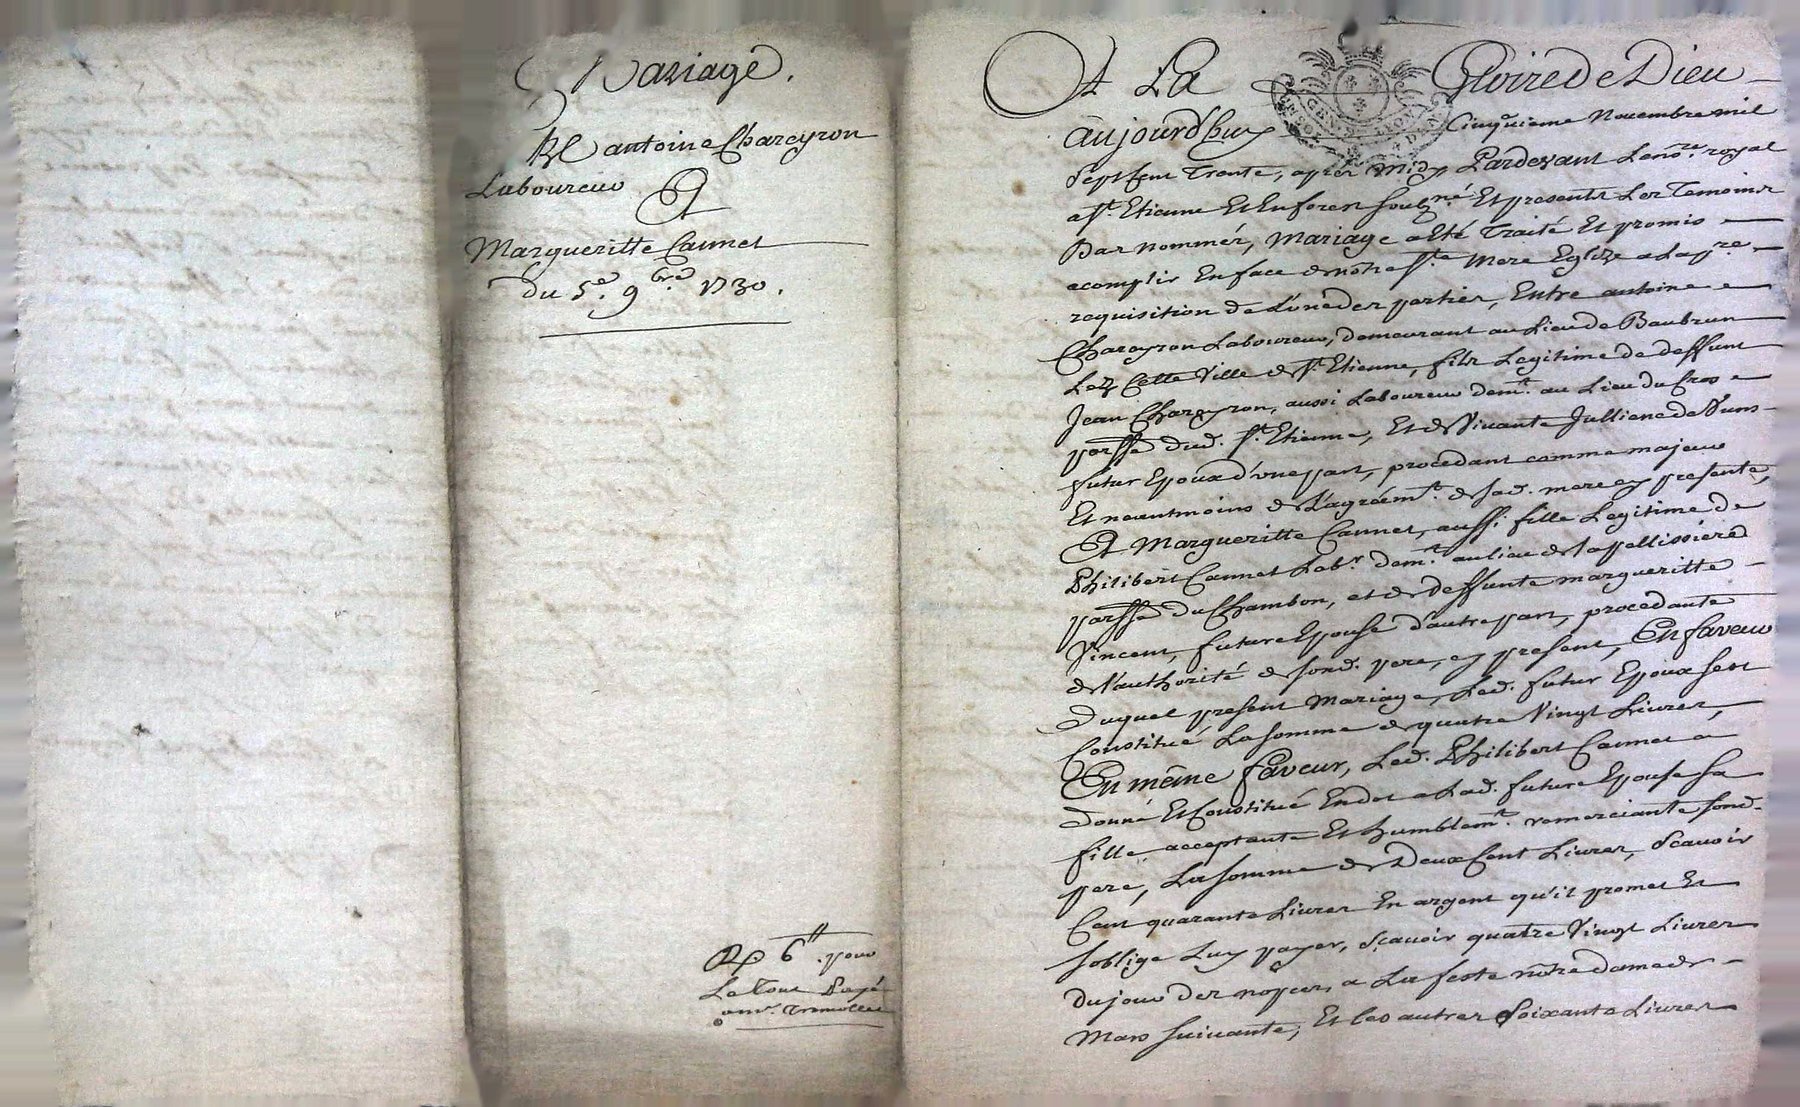 Mariage.
De antoine Chareyron
Laboureur
Et
Margueritte Cannet
du 5e. 9bre. 1730.
Rx 6tt. pour
Le Tout Payé
A La Gloire de Dieu
aujourd'huy Cinquieme Novembre mil
Sept Cent Trente, aprés Midy Pardevant Le nore. royal
a St. Etienne Et En forest Soubzné. Et presents Les Temoins
Bas nommés, Mariage a Eté Traité Et promis
acomplir En face de nôtre Ste. Mere Eglize a La pre.
requisition de L'une des parties, Entre antoine
Chareyron Laboureur, demeurant au Lieu de Baubrun
Lez Cette Ville de St. Etienne, fils Legitime de deffunt
Jean Chareyron, aussi Laboureur demt. au Lieu du Cros
parsse dud. St. Etienne, Et de Vivante Jullienne
futur Epoux d'vne part, procedant comme majeur
Et neantmoins de L'agréemt. de sad. mere icy presente,
Et Margueritte Cannet, aussi fille Legitime de
Philibert Cannet Labr. demt. au lieu de la pellissiere
parsse du Chambon, et de deffunte margueritte
Vincent, future Epouse d'autre part, procedante
de l'authorité de sond. pere, icy present, En faveur
duquel present Mariage, Led. futur Epoux sest
Constitué La Somme de quatre Vingt Livres,
En même faveur, Led. Philibert Cannet a
donné Et Constitué En dot a Lad. future Epouse sa
fille acceptante Et humblemt. remerciante sond.
pere, La somme de Deux Cent Livres, Scavoir
Cent quarante Livres En argent qu'il promet Et
soblige Luy payer, Scavoir quatre Vingt Livres
du jour des nopces, a La feste nôtre dame de
Mars Suivante, Et les autres Soixante Livres